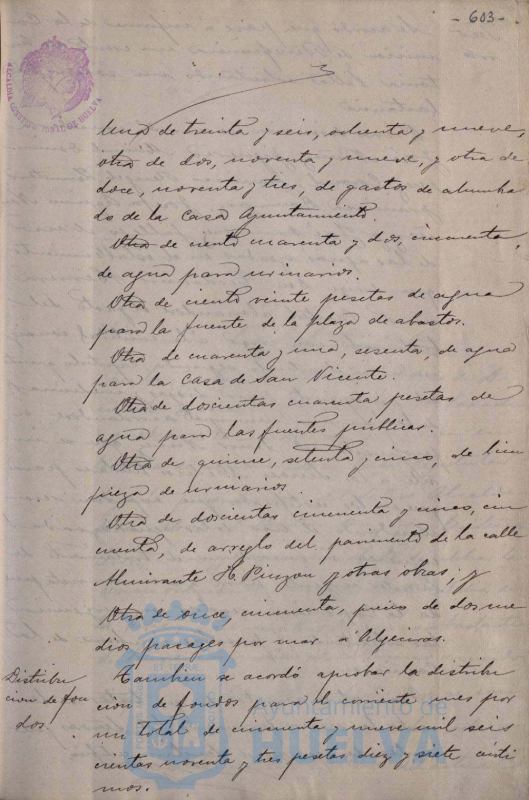 - 603 -
ALCALDIA CONSTITUCIONAL DE HUELVA
Una de treinta y seis, ochenta y nueve,
otra de dos, noventa y nueve, y otra de
doce, noventa y tres, de gastos de alumbra
do de la Casa Ayuntamiento.
Otra de ciento cuarenta y dos, cincuenta,
de agua para urinarios.
Otra de ciento veinte pesetas de agua
para la fuente de la plaza de abastos.
Otra de cuarenta y una, sesenta, de agua
para la Casa de San Vicente.
Otra de doscientas cuarenta pesetas de
agua para las fuentes públicas.
Otra de quince, setenta y cinco, de lim
pieza de urinarios.
Otra de doscientas cincuenta y cinco, cin
cuenta, de arreglo del pavimento de la calle
Almirante H. Pinzon y otras obras; y
Otra de once, cincuenta, precio de dos me
dios pasages por mar á Algeciras.
Distribu
cion de fon
dos
Tambien se acordó aprobar la distribu
cion de fondos para el corriente mes por
un total de cincuenta y nueve mil seis
cientas noventa y tres pesetas diez y siete cénti
mos.
Ayuntamiento de
HUELVA